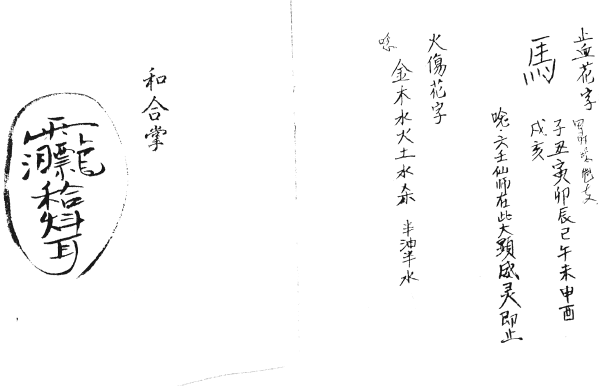 止血花字
馬
子丑寅卯辰巳午未申酉
戌亥
唸六壬仙師在此大顯威灵即止
火傷花字
唸
金木水火土水森 半油半水
和合掌